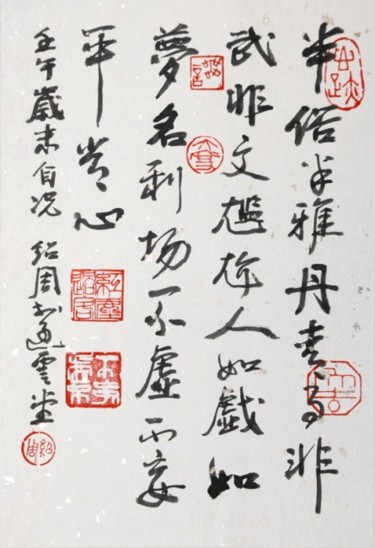 半俗半雅丹青手非
武非文尷尬人如戲如
夢名利场不虚不妄
平常心
壬午歲末自况 紹周书 雲堂